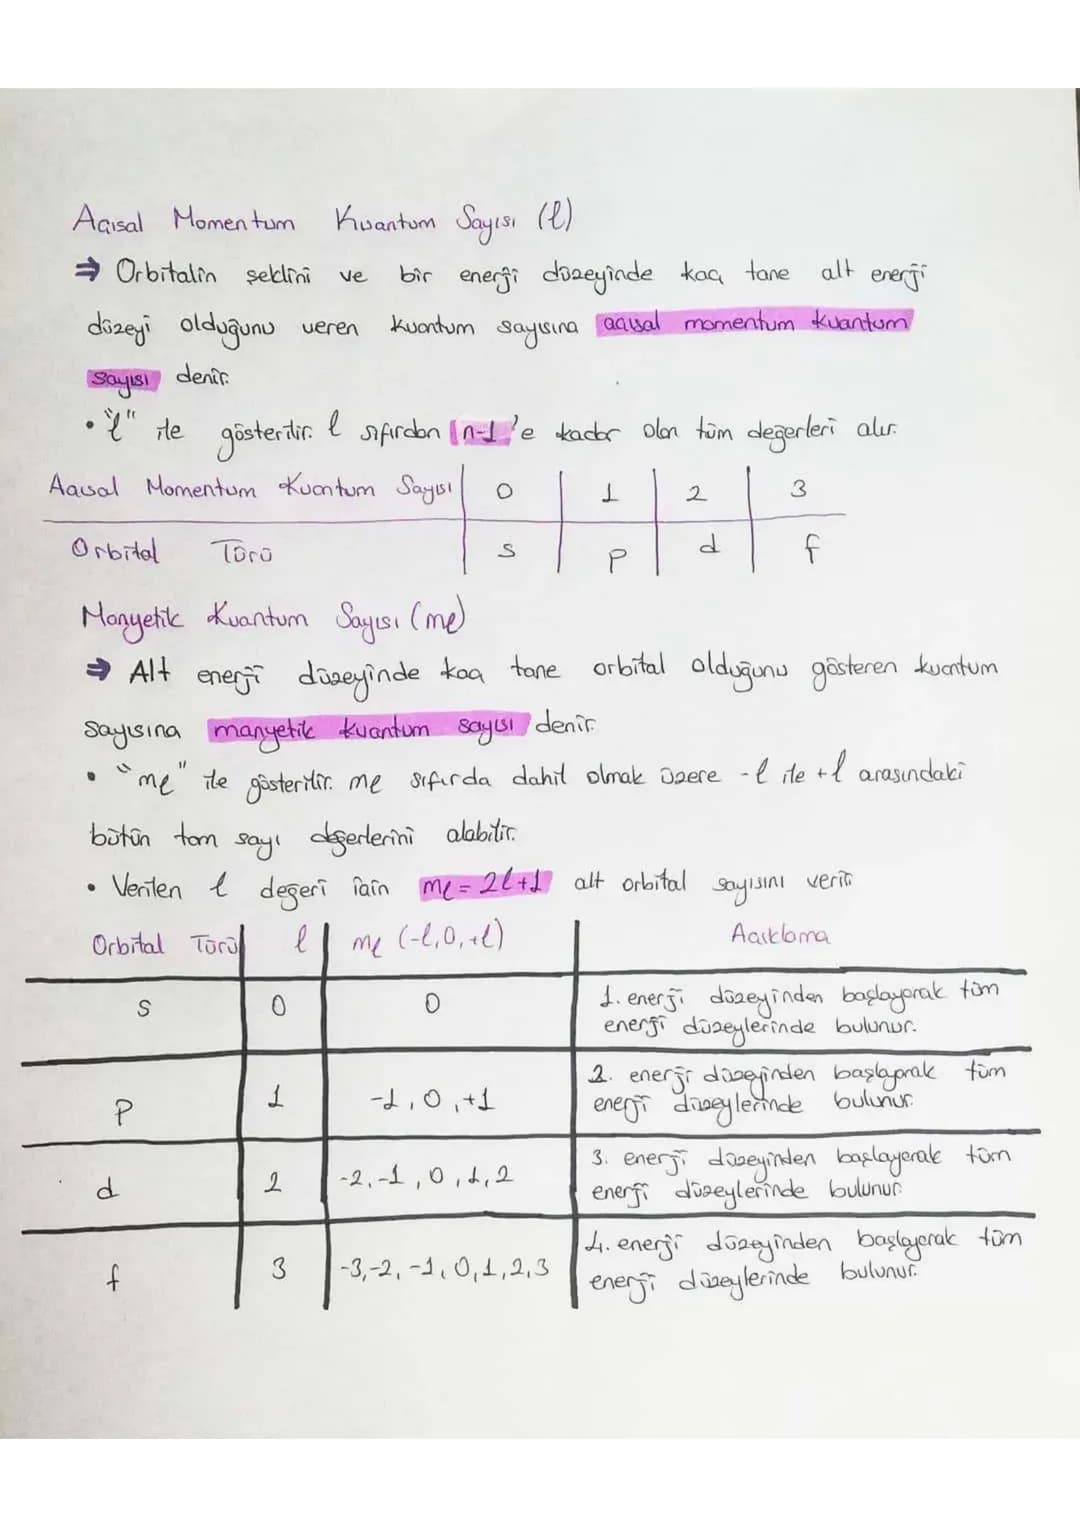 Açısal Momentum Kuantum Sayısı (l)
⇒ Orbitalin şeklini ve bir enerji düzeyinde kaç tane alt enerji
düzeyi olduğunu veren kuantum sayısına açısal momentum kuantum
sayısı denir.
• "l" ile gösterilir. l sıfırdan n-1'e kadar olan tüm değerleri alır.
Açısal Momentum Kuantum Sayısı 0 1 2 3
Orbital Türü s p d f
Manyetik Kuantum Sayısı (ml)
⇒ Alt enerji düzeyinde kaç tane orbital olduğunu gösteren kuantum
sayısına manyetik kuantum sayısı denir.
• "ml" ile gösterilir. ml sıfırda dahil olmak üzere -l ile +l arasındaki
bütün tam sayı değerlerini alabilir.
• Verilen l değeri için ml = 2l+1 alt orbital sayısını verir
Orbital Türü l ml (-l,0,+l) Açıklama
s 0 0 1. enerji düzeyinden başlayarak tüm
enerji düzeylerinde bulunur.
p 1 -1, 0, +1 2. enerji düzeyinden başlayarak tüm
enerji düzeylerinde bulunur.
d 2 -2, -1, 0, 1, 2 3. enerji düzeyinden başlayarak tüm
enerji düzeylerinde bulunur.
f 3 -3, -2, -1, 0, 1, 2, 3 4. enerji düzeyinden başlayarak tüm
enerji düzeylerinde bulunur.